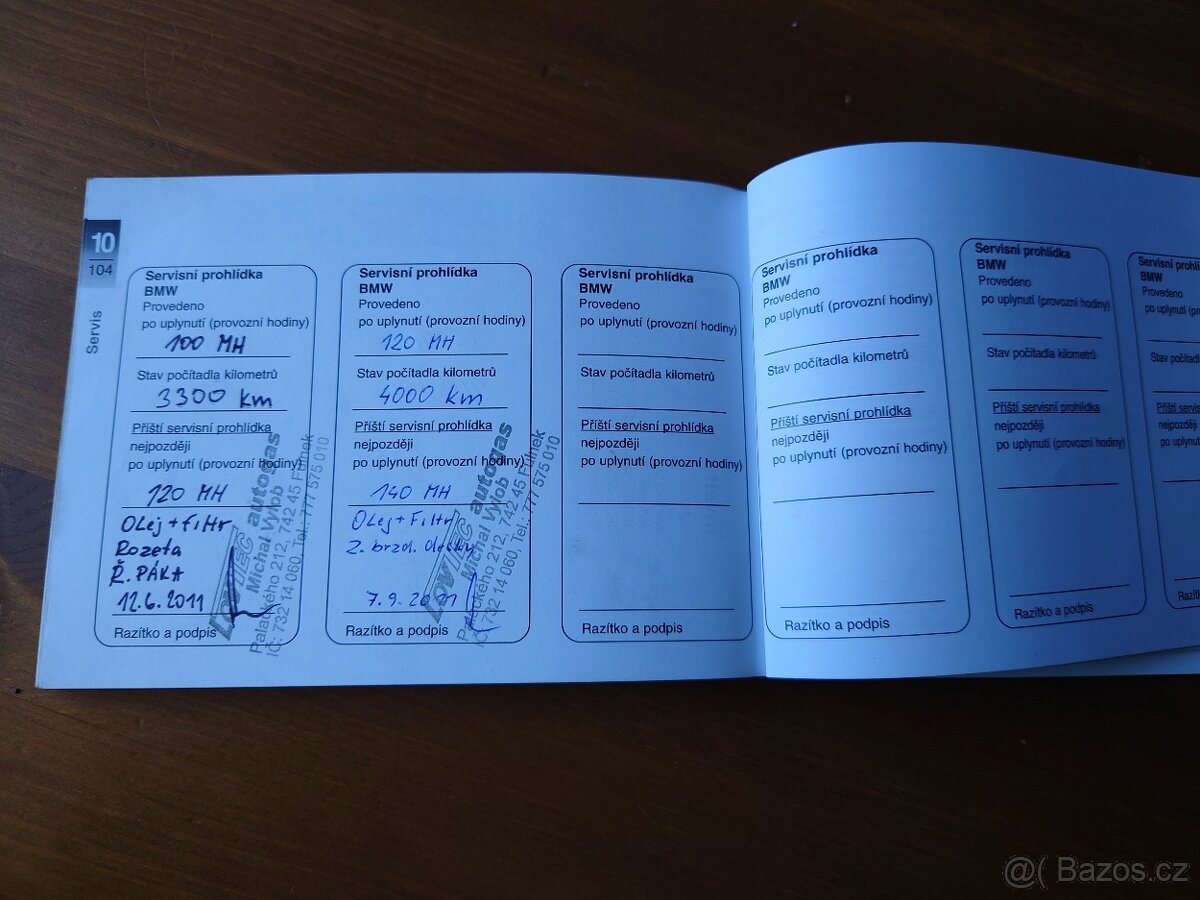 10
104
Servis
Servisní prohlídka
BMW
Provedeno
po uplynutí (provozní hodiny)
100 MH
Stav počítadla kilometrů
3300 km
Příští servisní prohlídka
nejpozději
po uplynutí (provozní hodiny)
120 MH
OLej + FiLtr
Rozeta
Ř. PÁKA
12.6.2011
Razítko a podpis
autogas
Michal Vylob
Palackého 212, 742 45 Fulnek
IČ: 732 14 060, Tel.: 777 575 010
Servisní prohlídka
BMW
Provedeno
po uplynutí (provozní hodiny)
120 MH
Stav počítadla kilometrů
4000 km
Příští servisní prohlídka
nejpozději
po uplynutí (provozní hodiny)
140 MH
OLej + FiLtr
Z. brzd. desky
7.9.2011
Razítko a podpis
autogas
Michal Vylob
Palackého 212, 742 45 Fulnek
IČ: 732 14 060, Tel.: 777 575 010
Servisní prohlídka
BMW
Provedeno
po uplynutí (provozní hodiny)
Stav počítadla kilometrů
Příští servisní prohlídka
nejpozději
po uplynutí (provozní hodiny)
Razítko a podpis
Servisní prohlídka
BMW
Provedeno
po uplynutí (provozní hodiny)
Stav počítadla kilometrů
Příští servisní prohlídka
nejpozději
po uplynutí (provozní hodiny)
Razítko a podpis
Servisní prohlídka
BMW
Provedeno
po uplynutí (provozní hodiny)
Stav počítadla kilometrů
Příští servisní prohlídka
nejpozději
po uplynutí (provozní hodiny)
Razítko a podpis
Servisní prohlí
BMW
Provedeno
po uplynutí (p
Stav počítadl
Příští servis
nejpozději
po uplynutí
Razítk
@( Bazos.cz